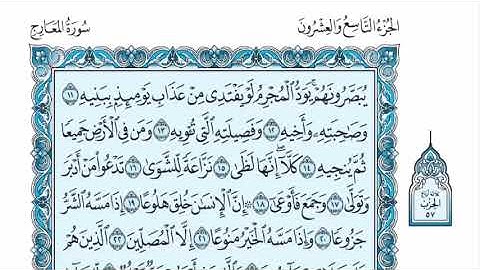 سُورَةُ المَعَارِجِ
الجُزْءُ التَّاسِعُ وَالعِشْرُونَ
يُبَصَّرُونَهُمْ ۚ يَوَدُّ ٱلْمُجْرِمُ لَوْ يَفْتَدِى مِنْ عَذَابِ يَوْمِئِذٍۭ بِبَنِيهِ ١١
وَصَٰحِبَتِهِۦ وَأَخِيهِ ١٢ وَفَصِيلَتِهِ ٱلَّتِى تُـْٔوِيهِ ١٣ وَمَن فِى ٱلْأَرْضِ جَمِيعًا
ثُمَّ يُنجِيهِ ١٤ كَلَّآ ۖ إِنَّهَا لَظَىٰ ١٥ نَزَّاعَةً لِّلشَّوَىٰ ١٦ تَدْعُوا۟ مَنْ أَدْبَرَ
وَتَوَلَّىٰ ١٧ وَجَمَعَ فَأَوْعَىٰٓ ١٨ ۞ إِنَّ ٱلْإِنسَٰنَ خُلِقَ هَلُوعًا ١٩ إِذَا مَسَّهُ ٱلشَّرُّ
جَزُوعًا ٢٠ وَإِذَا مَسَّهُ ٱلْخَيْرُ مَنُوعًا ٢١ إِلَّا ٱلْمُصَلِّينَ ٢٢ ٱلَّذِينَ هُمْ
الحِزْب
٥٧